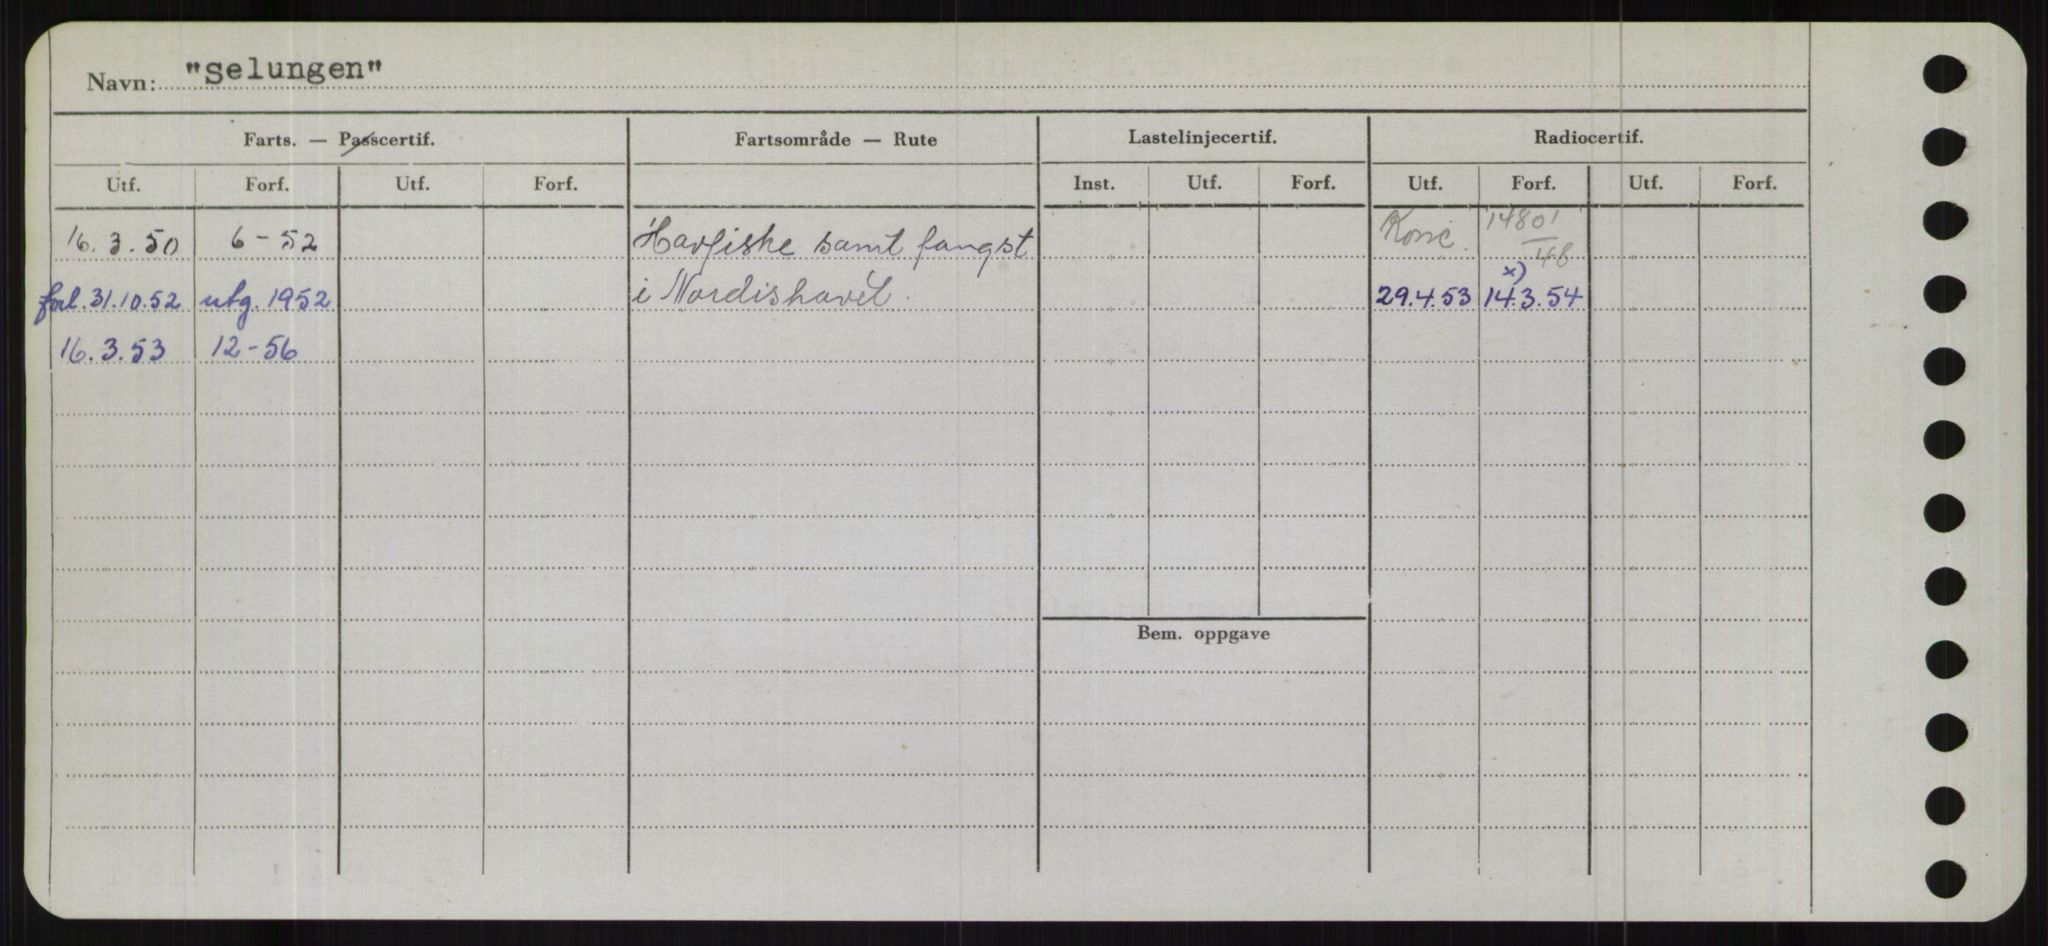 Navn: "Selungen"
Farts. — Passcertif. Fartsområde — Rute Lastelinjecertif. Radiocertif.
Utf. Forf. Utf. Forf. Inst. Utf. Forf. Utf. Forf. Utf. Forf.
16.3.50 6-52 Havfiske samt fangst 14801/48
forl. 31.10.52 utg. 1952 i Nordishavet. 29.4.53 14.3.54 x)
16.3.53 12-56
Bem. oppgave